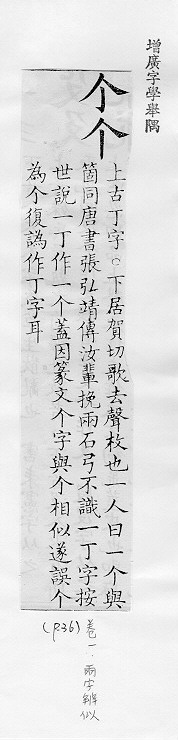 增廣字學舉隅
个个
上古丁字○下居賀切歌去聲枚也一人曰一个與
箇同唐書張弘靖傳汝輩挽兩石弓不識一丁字按
世說一丁作一个蓋因篆文个字與个相似遂誤个
為个復譌作丁字耳
卷一、兩字辨似
(P36)